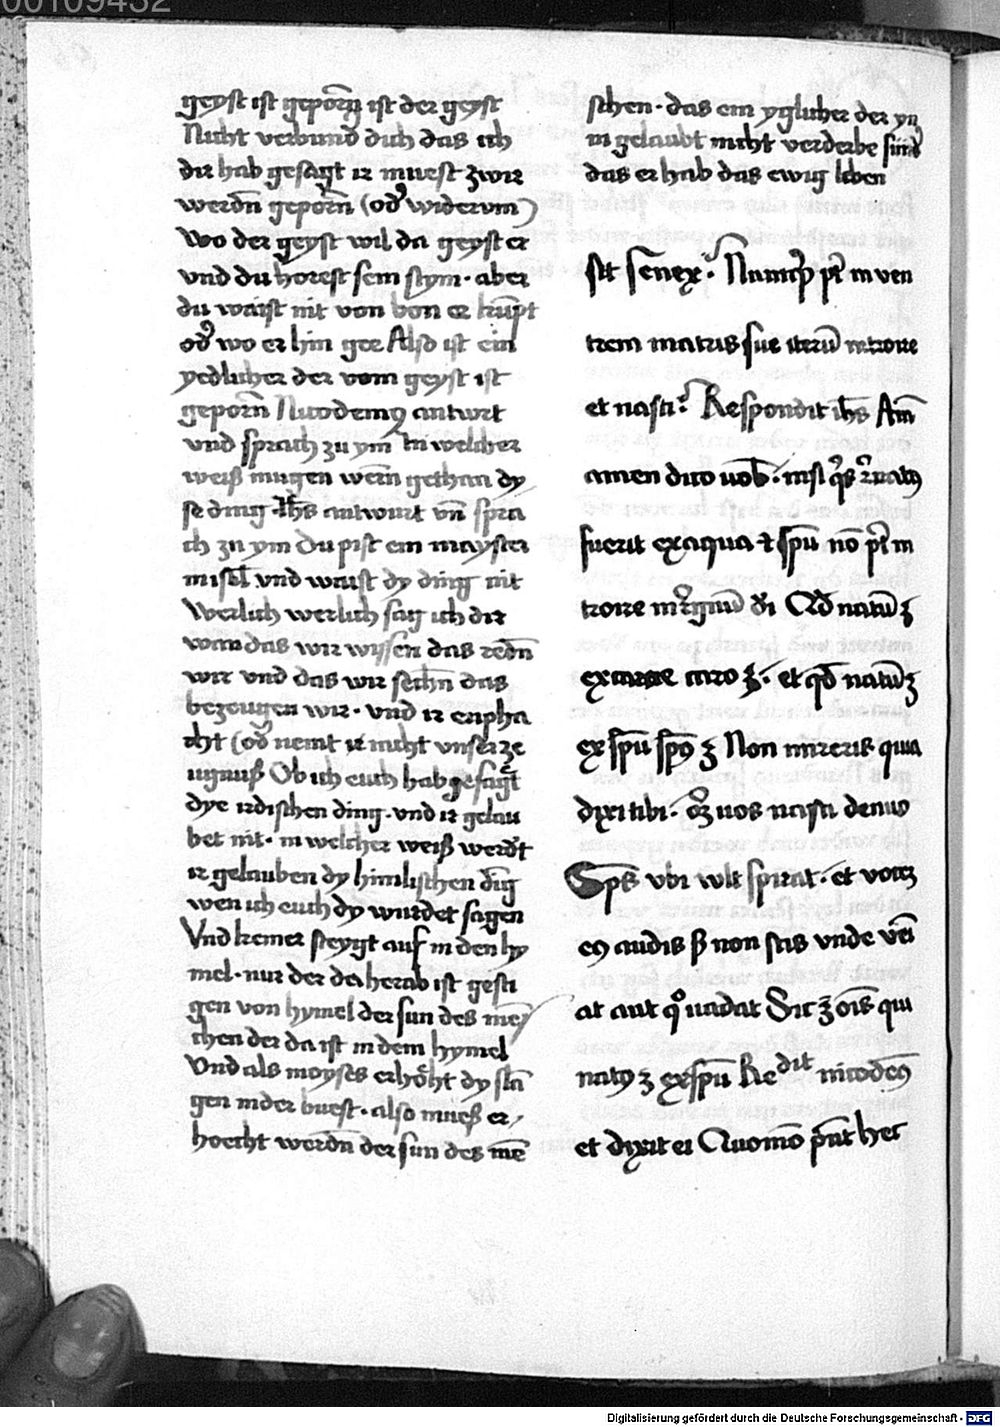 00109432
geyst ist geporn ist der geyst
Nicht verbund dich das ich
dir hab gesagt ir muest zwir
werdn geporn (od widerum)
Wo der geyst wil da geyst er
vnd du horest sein stym · aber
du waist nit von von er kumpt
od wo er hin gee Also ist ein
yedlicher der vom geyst ist
geporn Nicodemus antwrt
vnd sprach zu ym In welcher
weiß mugen wern gethan dy
se ding Ihs antwurt vn spra
ch zu ym Du pist ein mayster
in isrl vnd waist dy ding nit
Werlich werlich sag ich dir
wan das wir wyssen das redn
wir vnd das wir sechn das
bezeugen wir · vnd ir enpha
cht (od nemt ir nicht vnser ze
ugnuß Ob ich euch hab gesagt
dye irdischen ding · vnd ir gelau
bet nit · in welcher weiß werdt
ir gelauben dy himlischen ding
wen ich euch dy wurdet sagen
Vnd kemer steygt auf in den hy
mel · nur der der herab ist gesti
gen von hymel der sun des men
schen der da ist in dem hymel
Vnd als moyses erhöht dy slan
gen in der wuest · also mueß er
hoecht werdn der sun des men
schen · das ein yglicher der yn
in gelaubt nicht verderbe sund
das er hab das ewig leben
sit senex · Numqd pt in ven
trem matris sue iteru introire
et nasci · Respondit ihs Am
amen dico uob · nisi qs renatus
fuerit ex aqua et spu no pt in
troire in regnu di Qd natu est
ex carne caro est · et qd natu est
ex spu sps est Non mireris quia
dixi tibi · oz uos nasci denuo
Sps vbi wlt spirat · et voce
eius audis sz non scis vnde veni
at aut quo uadat Sic est ois qui
natus est ex spu Redit nicodeus
et dixit ei Quomo pnt hec
Digitalisierung gefördert durch die Deutsche Forschungsgemeinschaft - DFG